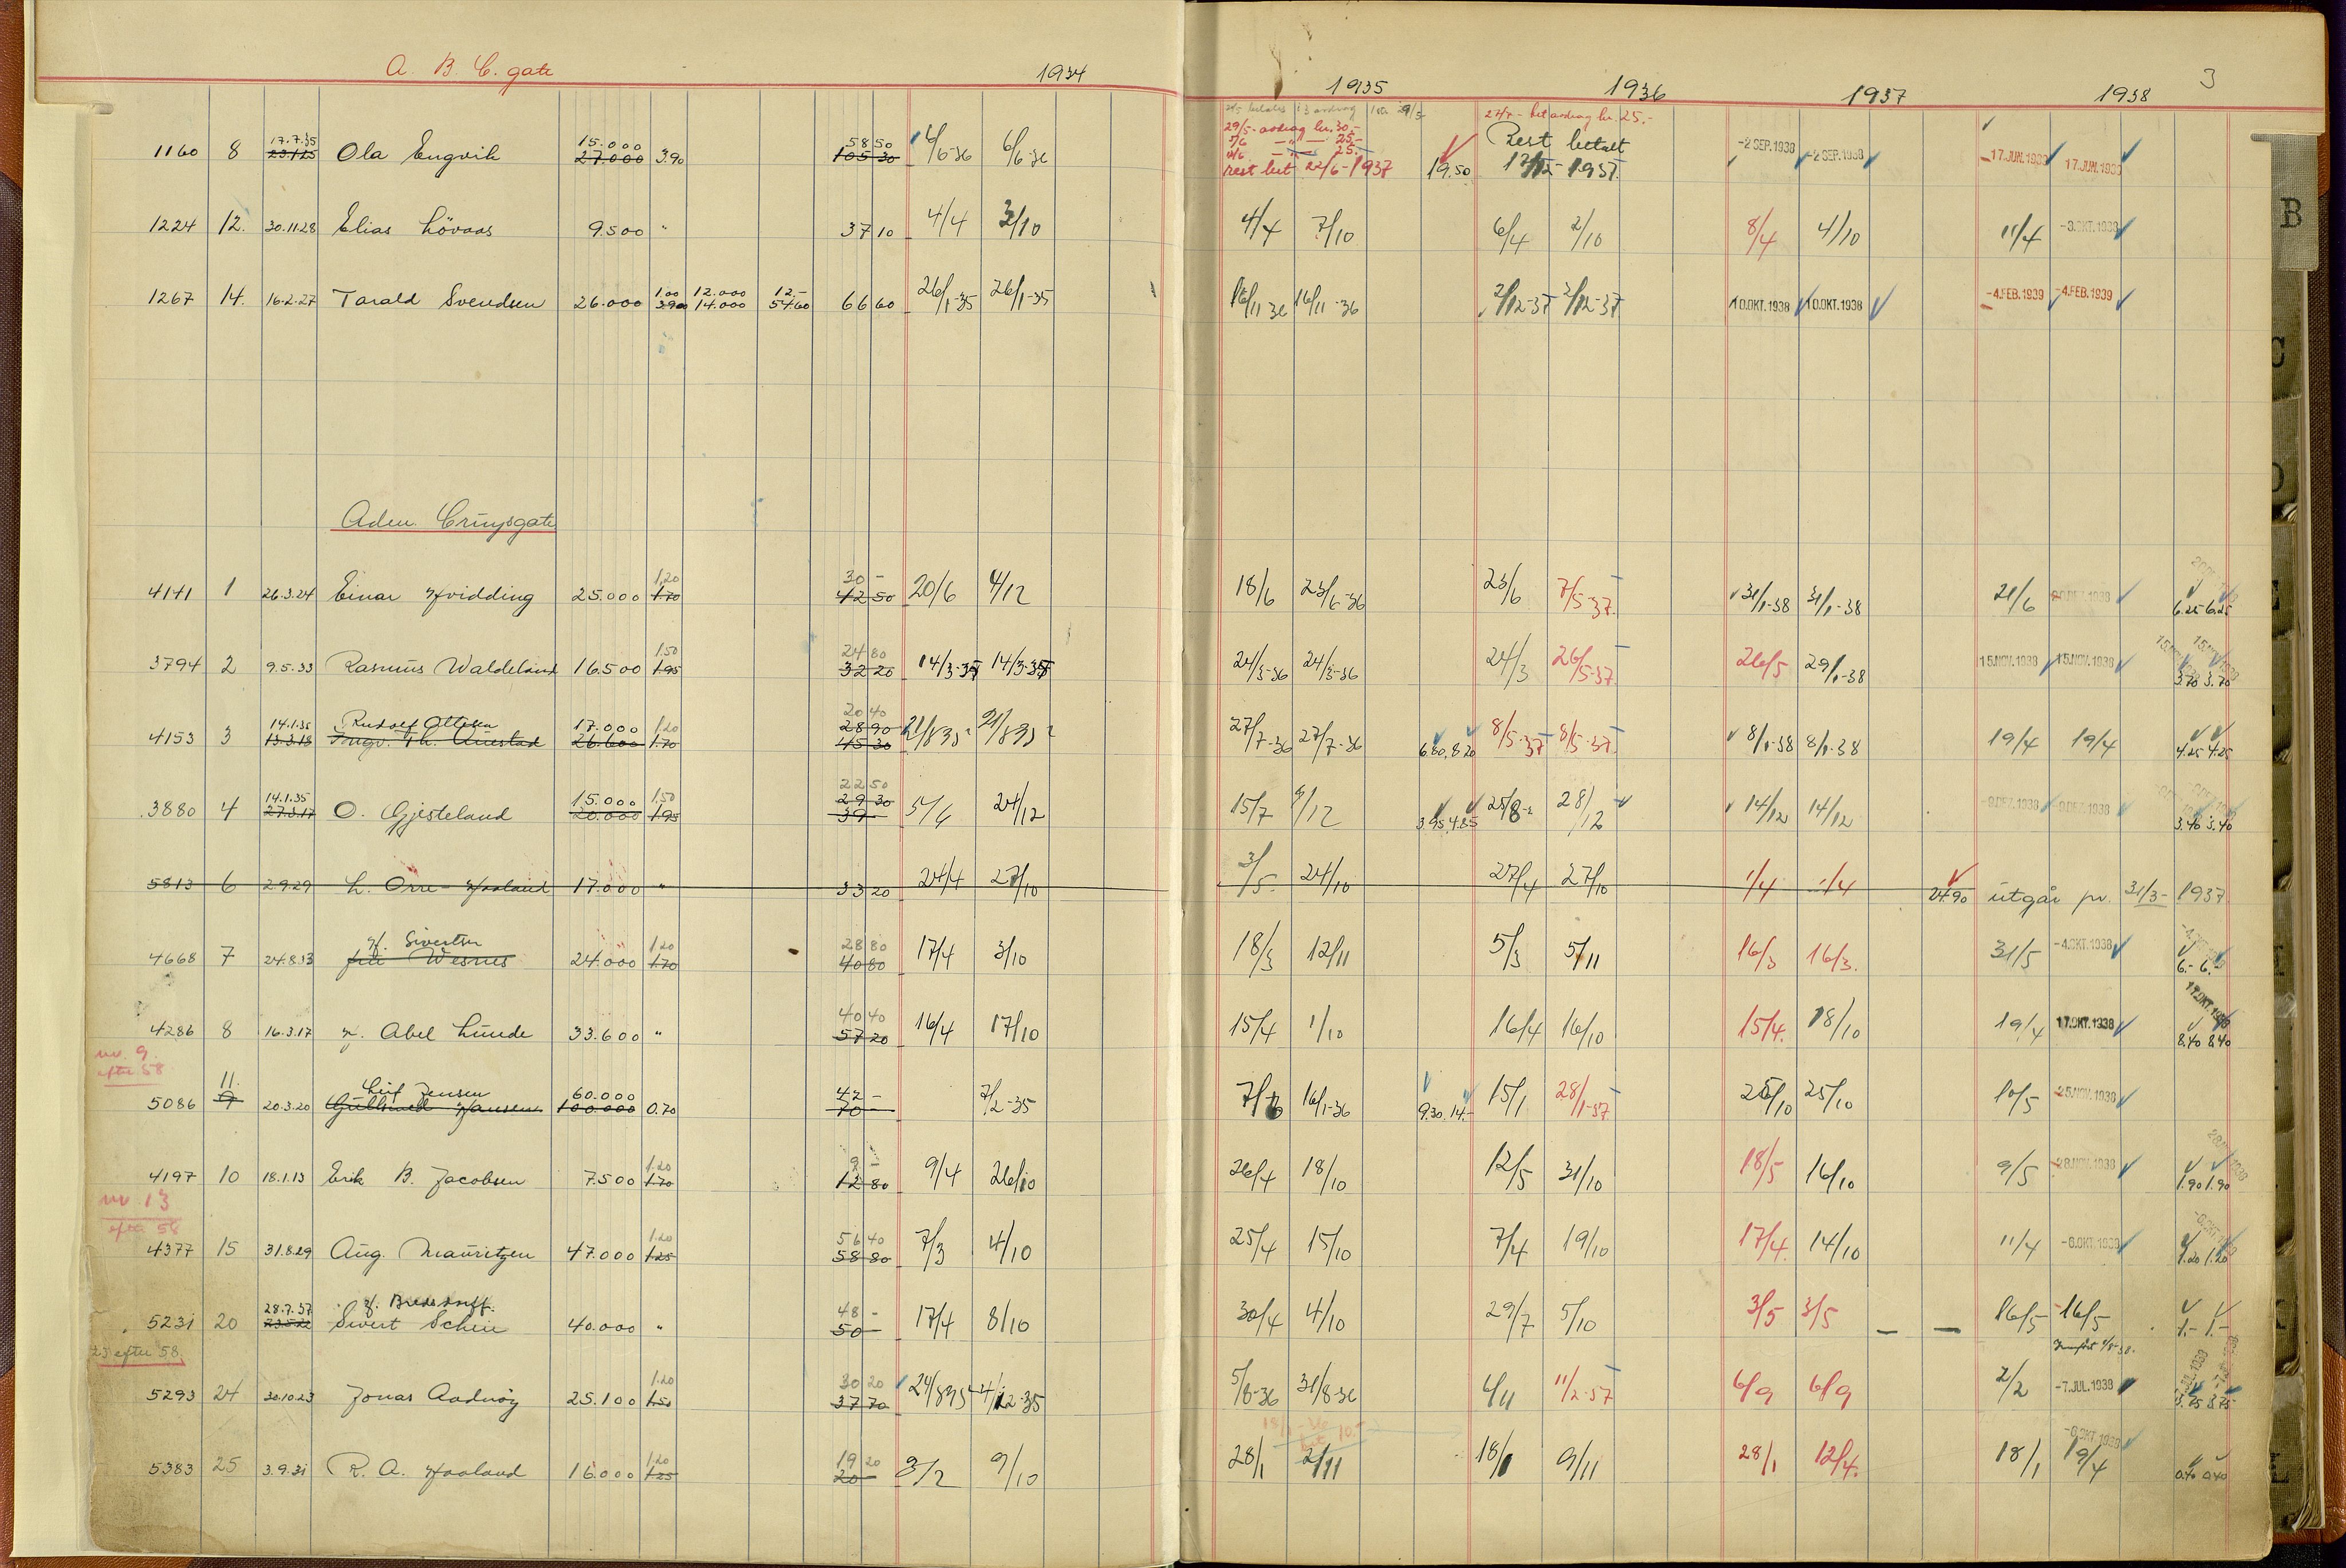 A. B. C. gate 1934 1935 1936 1937 1938 3
29/5 - avdrag kr. 30.- 27/7 - bet avdrag kr. 25.-
1160 8 17.7.35 23.1.25 Ola Engvik 15.000 27.000 3.90 58 50 105 30 4/6-36 6/6-36 rest bet 22/6-1937 19.50 Rest betalt 17/12-1937. -2 SEP. 1938 -2 SEP. 1938 17. JUN. 1938 17. JUN. 1938
1224 12. 30.11.28 Elias Lövaas 9.500 " 37 10 4/4 3/10 4/4 7/10 6/4 2/10 8/4 4/10 11/4 -3. OKT. 1938
1267 14. 16.2.27 Tarald Svendsen 26.000 1.00 3.90 12.000 14.000 12.- 54.60 66 60 26/1-35 26/1-35 16/11 36 16/11-36 2/12-37 2/12-37 10. OKT. 1938 10. OKT. 1938 -4. FEB. 1939 -4. FEB. 1939
Adm. Cruysgate
4141 1 26.3.24 Einar Hvidding 25.000 1.20 1.70 30 - 42 50 20/6 4/12 18/6 23/6-36 23/6 7/5-37. 31/1-38 31/1-38 21/6 6.25 6.25
3794 2 9.5.33 Rasmus Waldeland 16.500 1.50 1.95 24 80 32 20 14/3-35 14/3-35 24/3-36 24/3-36 24/3 26/5-37 26/5 29/1-38 15. NOV. 1938 15. NOV. 1938 3.70 3.70
4153 3 14.1.35 13.3.18 Rudolf Ottesen 17.000 26.600 1.20 1.70 20 40 28 90 45 30 27/7-36 27/7-36 6.80 8.20 8/5-37 8/5-37 8/1-38 8/1-38 19/4 19/4 4.25 4.25
3880 4 14.1.35 27.3.17 O. Gjesteland 15.000 20.000 1.50 1.95 22 50 29 30 39 - 5/6 24/12 15/7 9/12 3.95 4.85 28/12 14/12 14/12 -9. DEZ. 1938 -9. DEZ. 1938 3.40 3.40
5813 6 2.9.29 L. Orre-Haaland 17.000 " 33 20 24/4 27/10 3/5. 24/10 27/4 27/10 1/4 1/4 24.90 utgår pr. 31/3- 1937
4668 7 24.8.13 H. Sivertsen frk Wesnes 24.000 1.20 1.70 28 80 40 80 17/4 3/10 18/3 12/11 5/3 5/11 16/3 16/3. 31/5 -4. OKT. 1938 6.- 6.-
4286 8 16.3.17 H. Abel Lunde 33.600 " 40 40 57 20 16/4 17/10 15/4 1/10 16/4 16/10 15/4. 18/10 19/4 17. OKT. 1938 17. OKT. 1938 8.40 8.40
nr. 9. efter 58
5086 11. 9 20.3.20 Leif Jensen Gullsmed Hansen 60.000 100.000 0.70 42 - 70 - 7/2-35 16/1-36 9.30 14.- 15/1 28/1-37 25/10 25/10 10/5 25. NOV. 1938
4197 10 18.1.13 Erik B. Jacobsen 7.500 1.20 1.70 9 - 12 80 9/4 26/10 26/4 18/10 12/5 31/10 18/5 16/10 9/5 28. NOV. 1938 1.90 1.90
nr 13 efter 58
4377 15 31.8.29 Aug. Mauritzen 47.000 1.20 1.25 56 40 58 80 7/3 4/10 25/4 15/10 7/4 19/10 17/4. 14/10 11/4 -6. OKT. 1938 1.20 1.20
5231 20 28.7.37 Sivert Schei 40.000 " 48 - 50 - 17/4 8/10 30/4 4/10 29/7 5/10 3/5 3/5 16/5 16/5 1.- 1.-
23 efter 58.
5293 24 30.10.23 Jonas Aadnöy 25.100 1.20 1.50 30 20 37 70 5/8-36 31/8-36 6/11 11/2-37 6/9 6/9 2/2 -7. JUL. 1938 3.75 3.75
5383 25 3.9.31 R. A. Haaland 16.000 1.20 1.25 19 20 20 - 9/2 9/10 28/1 2/11 18/1 9/11 28/1 12/4. 18/1 19/4 -6. OKT. 1938 0.40 0.40